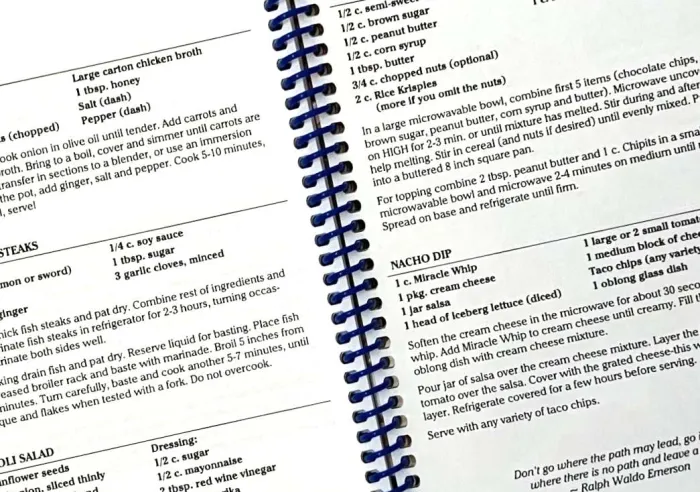 Large carton chicken broth
1 tbsp. honey
Salt (dash)
(chopped) Pepper (dash)
ook onion in olive oil until tender. Add carrots and
roth. Bring to a boil, cover and simmer until carrots are
ransfer in sections to a blender, or use an immersion
the pot, add ginger, salt and pepper. Cook 5-10 minutes,
, serve!
STEAKS
1/4 c. soy sauce
mon or sword) 1 tbsp. sugar
3 garlic cloves, minced
ginger
hick fish steaks and pat dry. Combine rest of ingredients and
inate fish steaks in refrigerator for 2-3 hours, turning occas-
rinate both sides well.
king drain fish and pat dry. Reserve liquid for basting. Place fish
eased broiler rack and baste with marinade. Broil 5 inches from
minutes. Turn carefully, baste and cook another 5-7 minutes, until
que and flakes when tested with a fork. Do not overcook.
OLI SALAD
Dressing:
nflower seeds 1/2 c. sugar
ion, sliced thinly 1/2 c. mayonnaise
2 tbsp. red wine vinegar
1/2 c. semi-sweet
1/2 c. brown sugar
1/2 c. peanut butter
1/2 c. corn syrup
1 tbsp. butter
3/4 c. chopped nuts (optional)
2 c. Rice Krispies
(more if you omit the nuts)
In a large microwavable bowl, combine first 5 items (chocolate chips,
brown sugar, peanut butter, corn syrup and butter). Microwave uncov
on HIGH for 2-3 min. or until mixture has melted. Stir during and after
help melting. Stir in cereal (and nuts if desired) until evenly mixed. P
into a buttered 8 inch square pan.
For topping combine 2 tbsp. peanut butter and 1 c. Chipits in a sma
microwavable bowl and microwave 2-4 minutes on medium until
Spread on base and refrigerate until firm.
NACHO DIP
1 c. Miracle Whip 1 large or 2 small tomat
1 pkg. cream cheese 1 medium block of che
1 jar salsa Taco chips (any variety
1 head of iceberg lettuce (diced) 1 oblong glass dish
Soften the cream cheese in the microwave for about 30 seco
whip. Add Miracle Whip to cream cheese until creamy. Fill
oblong dish with cream cheese mixture.
Pour jar of salsa over the cream cheese mixture. Layer the
tomato over the salsa. Cover with the grated cheese-this w
layer. Refrigerate covered for a few hours before serving.
Serve with any variety of taco chips.
Don't go where the path may lead, go i
where there is no path and leave a
~ Ralph Waldo Emerson